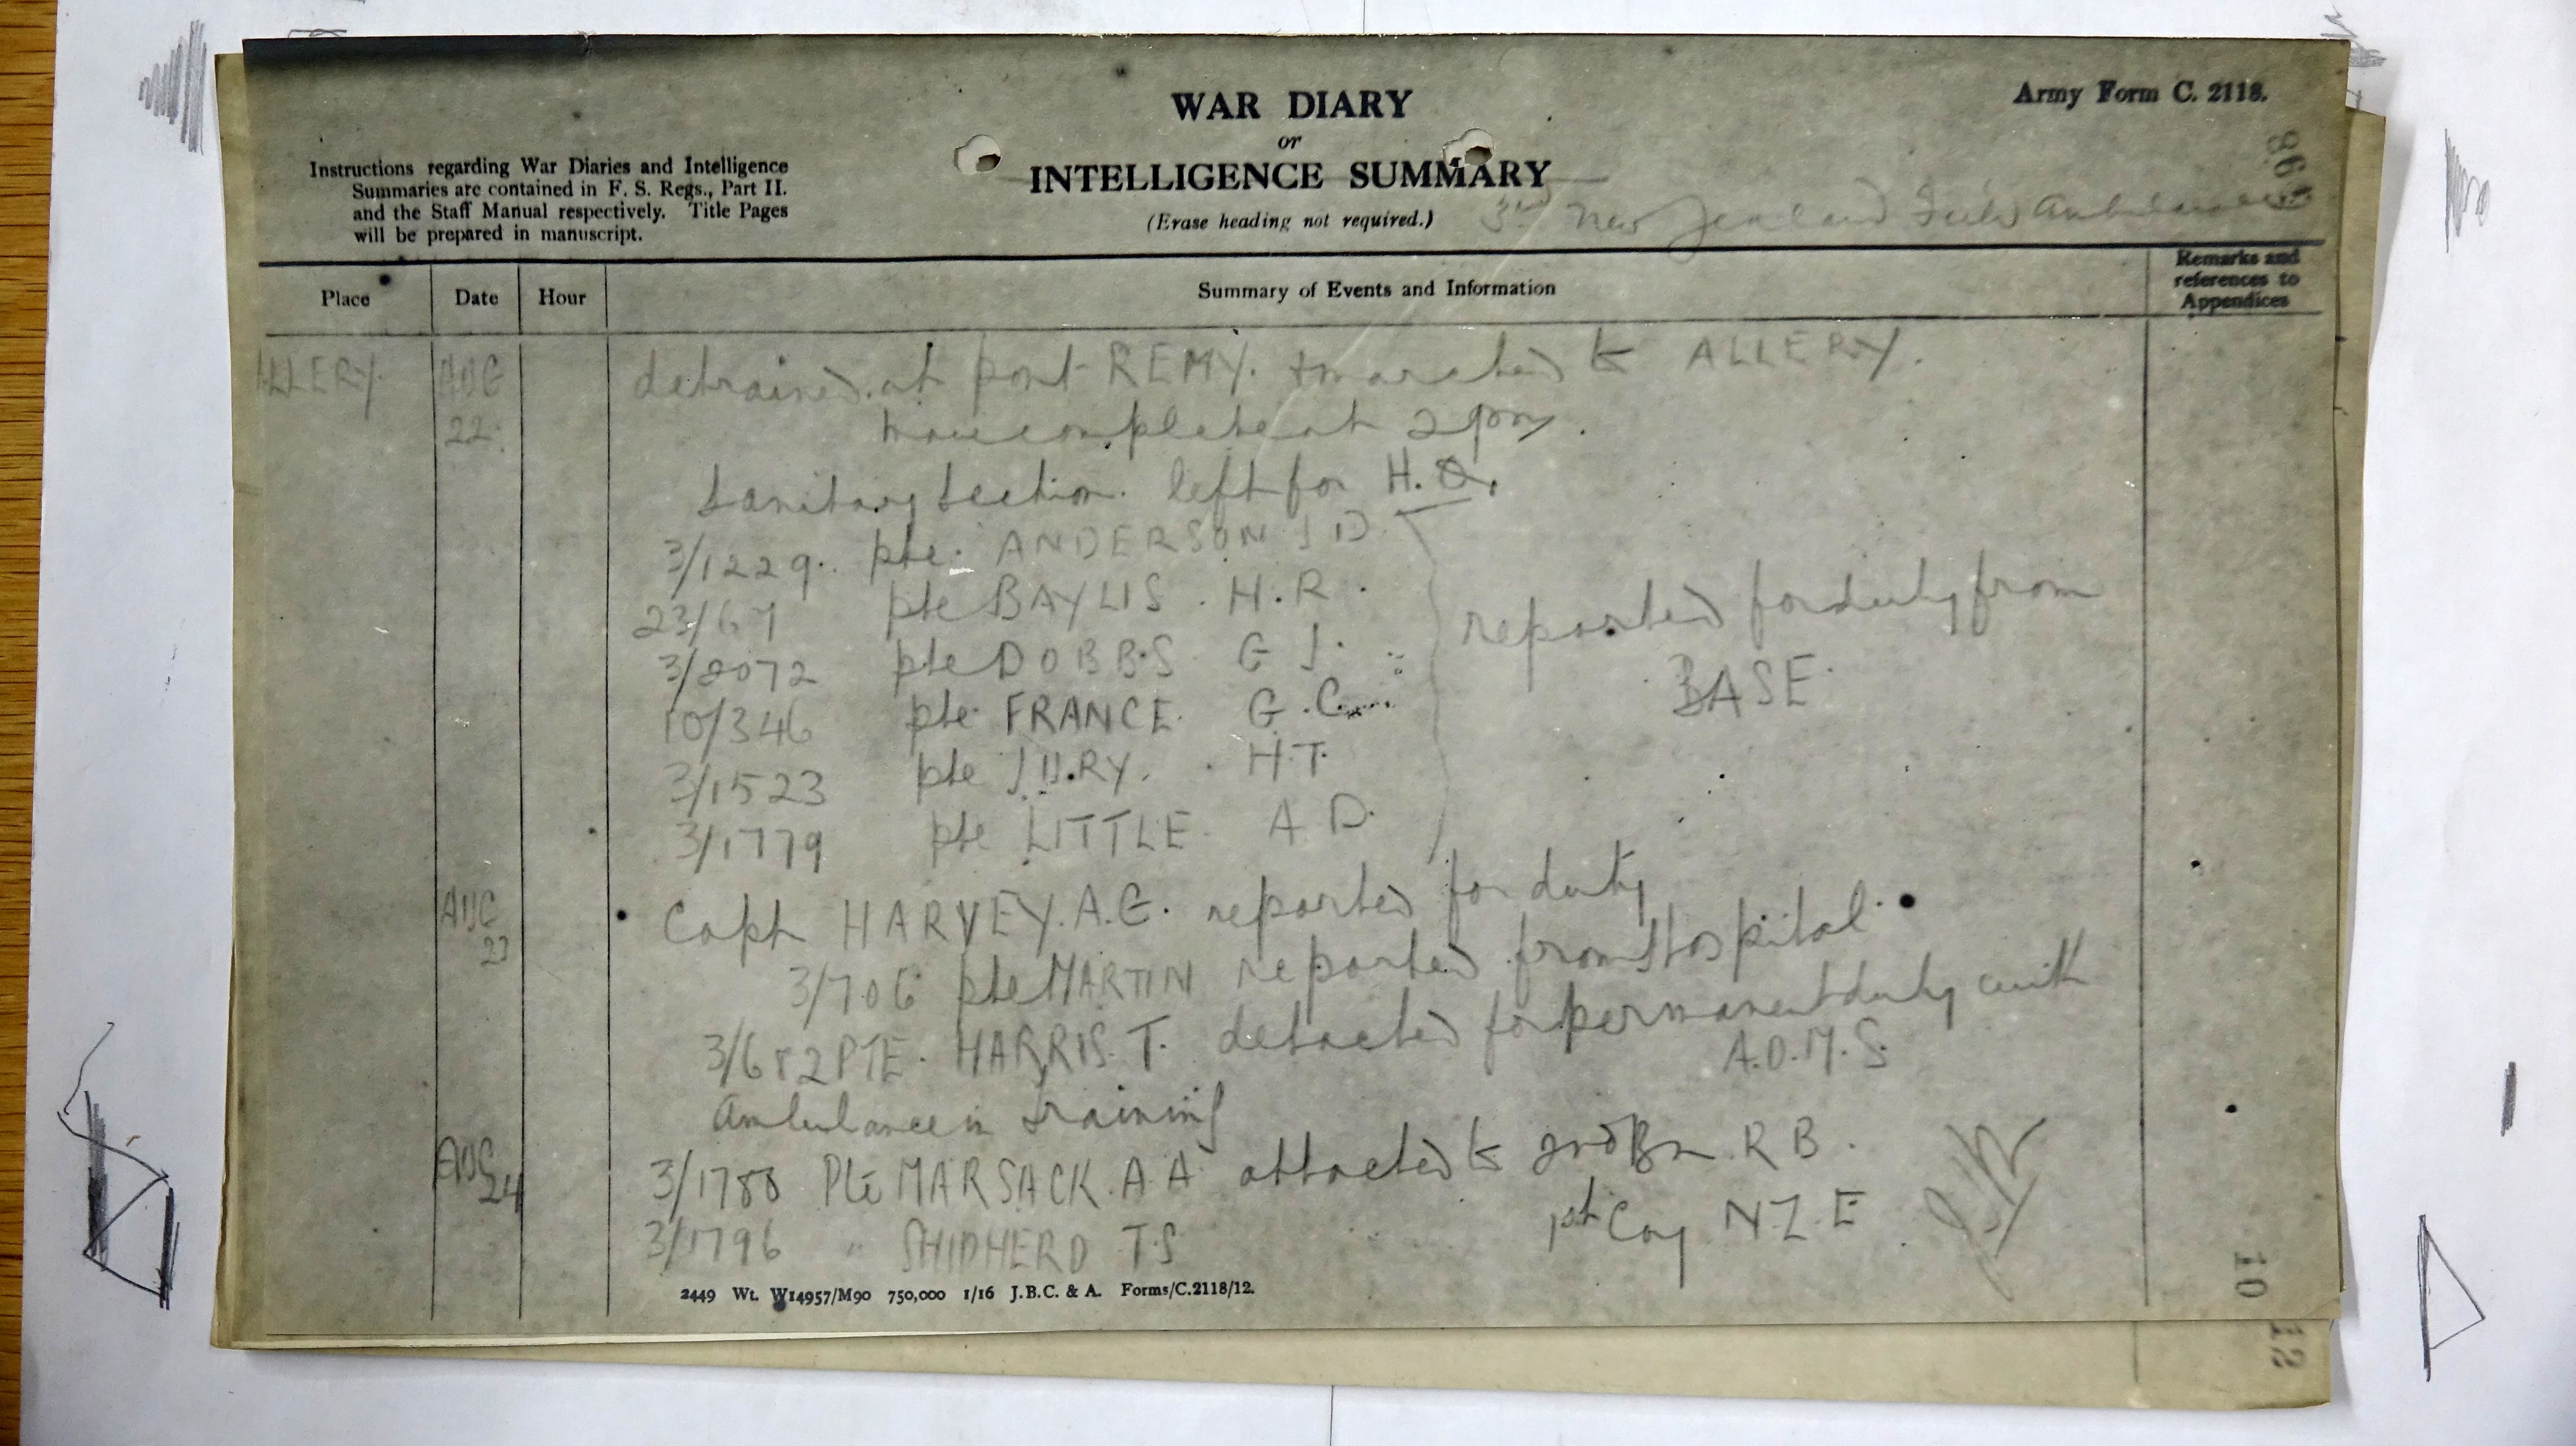 WAR DIARY
or
INTELLIGENCE SUMMARY
(Erase heading not required.)
Army Form C. 2118.
Instructions regarding War Diaries and Intelligence
Summaries are contained in F. S. Regs., Part II.
and the Staff Manual respectively. Title Pages
will be prepared in manuscript.
3rd New Zealand Field Ambulance
Place Date Hour Summary of Events and Information Remarks and references to Appendices
ALLERY AUG 22 detrained at pont REMY. & marched to ALLERY.
move complete at 2 pm.
Sanitary Section left for H.Q.
3/1229. pte. ANDERSON J D
23/67 pte BAYLIS. H.R.
3/2072 pte DOBBS G J.
10/346 pte FRANCE G.C.
3/1523 pte JURY. H.T.
3/1779 pte LITTLE A D.
reported for duty from
BASE.
AUG 23 Capt HARVEY. A.G. reported for duty
3/706 pte MARTIN reported from Hospital.
3/682 PTE. HARRIS. T. detached for permanent duty with
A.D.M.S.
Ambulance in training
AUG 24 3/1788 Pte MARSACK. A A attached to 2nd Bn. R B.
3/1796 " SHEPHERD T.S 1st Coy N Z E
2449 Wt. W14957/M90 750,000 1/16 J.B.C. & A. Forms/C.2118/12.
10
12